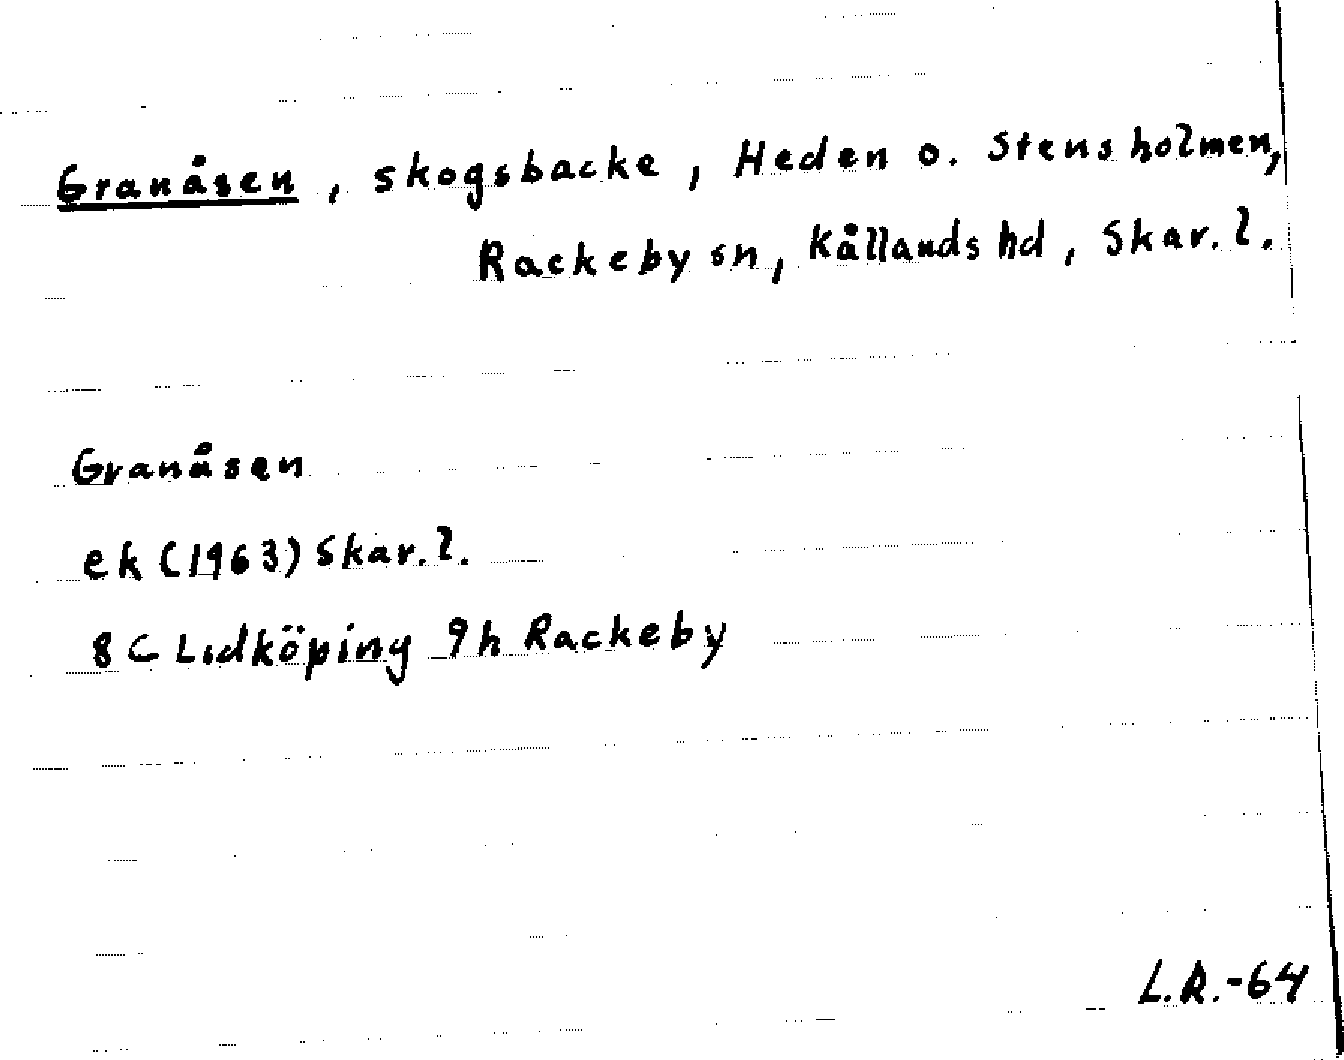 Granåsen, skogsbacke, Heden o. Stensholmen,
Rackeby sn, Kållands hd, Skar. l.
Granåsen
ek (1963) Skar. l.
8 C Lidköping 9h Rackeby
L.R.-64